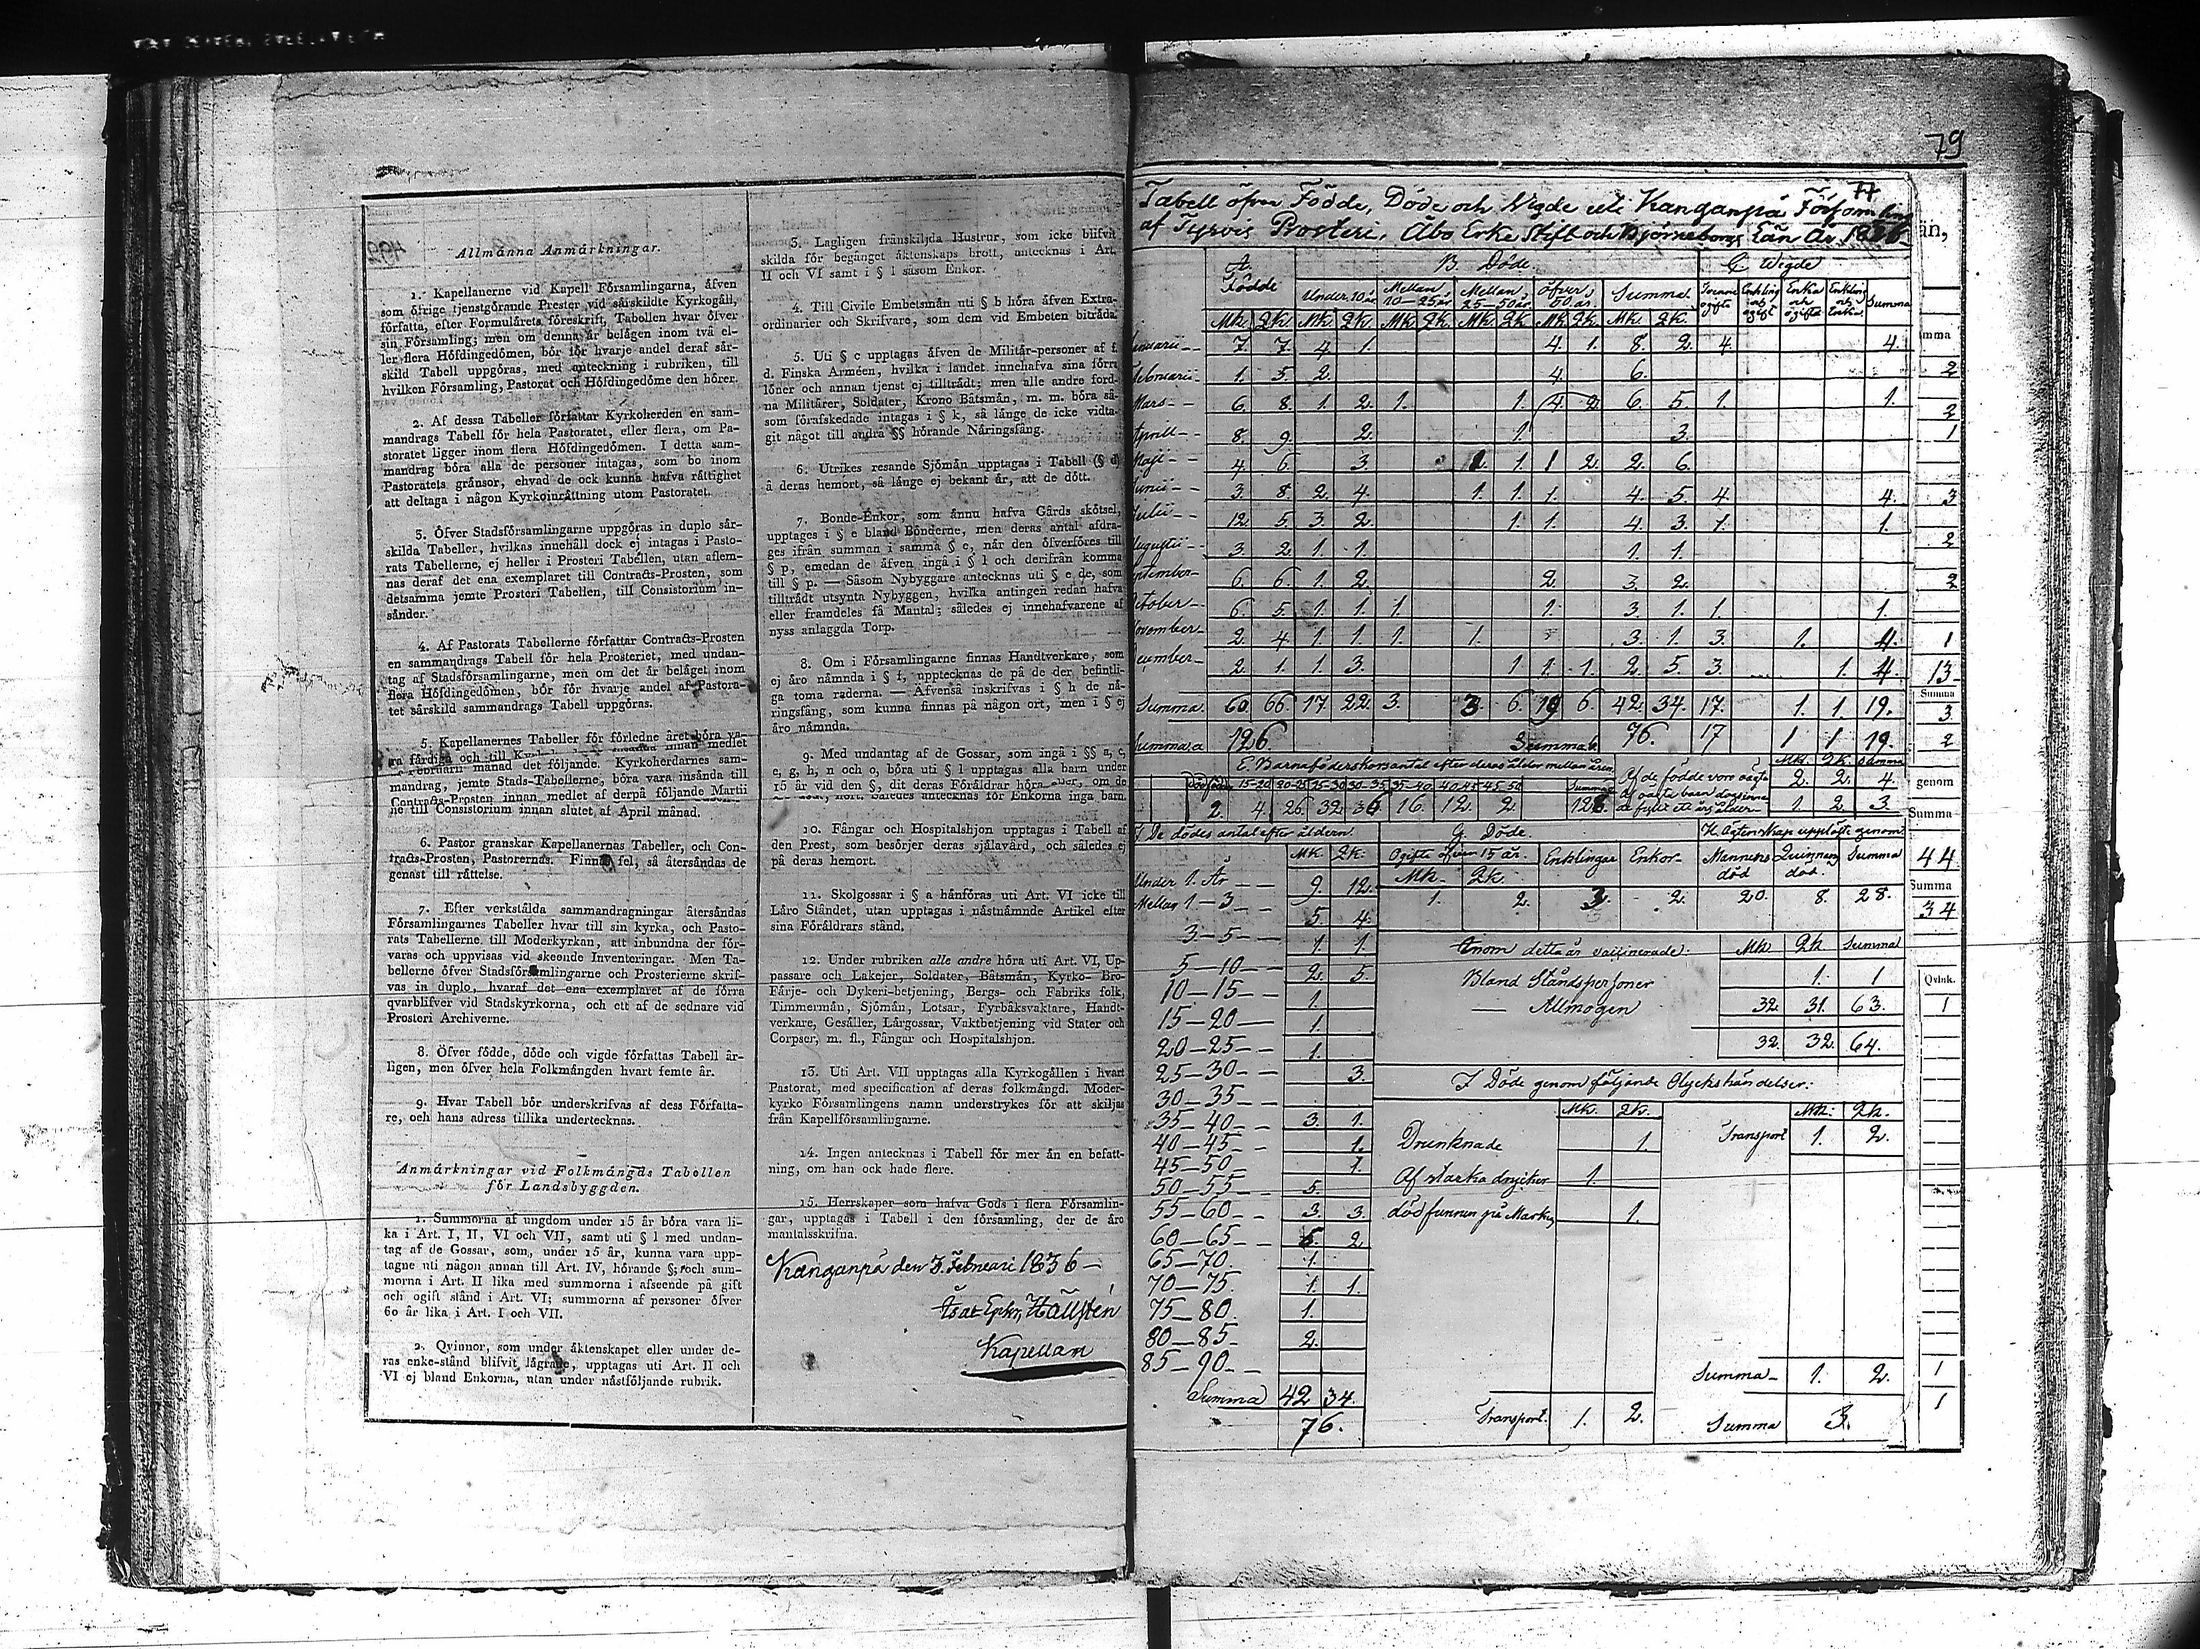 Allmänna Anmärkningar.
1. Kapellanerne vid Kapell Församlingarna, äfven
som öfrige tjenstgörande Prester vid särskildte Kyrkogäll,
författa, efter Formulärets föreskrift, Tabellen hvar öfver
sin Församling; men om denna är belägen inom två el-
ler flera Höfdingedömen, bör för hvarje andel deraf sär-
skild Tabell uppgöras, med anteckning i rubriken, till
hvilken Församling, Pastorat och Höfdingedöme den hörer.
2. Af dessa Tabeller författar Kyrkoherden en sam-
mandrags Tabell för hela Pastoratet, eller flera, om Pa-
storatet ligger inom flera Höfdingedömen. I detta sam-
mandrag böra alla de personer intagas, som bo inom
Pastoratets gränsor, ehvad de ock kunna hafva rättighet
att deltaga i någon Kyrkoinrättning utom Pastoratet.
3. Öfver Stadsförsamlingarne uppgöras in duplo sär-
skilda Tabeller, hvilkas innehåll dock ej intagas i Pasto-
rats Tabellerne, ej heller i Prosteri Tabellen, utan aflem-
nas deraf det ena exemplaret till Contracts-Prosten, som
detsamma jemte Prosteri Tabellen, till Consistorium in-
sänder.
4. Af Pastorats Tabellerne författar Contracts-Prosten
en sammandrags Tabell för hela Prosteriet, med undan-
tag af Stadsförsamlingarne, men om det är beläget inom
flera Höfdingedömen, bör för hvarje andel af Pastora-
tet särskild sammandrags Tabell uppgöras.
5. Kapellanernes Tabeller för förledne året böra va-
ra färdiga och till
Februarii månad det följande. Kyrkoherdarnes sam-
mandrag, jemte Stads-Tabellerne, böra vara insända till
Contracts-Prosten innan medlet af derpå följande Martii
ne till Consistorium innan slutet af April månad.
6. Pastor granskar Kapellanernas Tabeller, och Con-
tracts-Prosten, Pastorernas. Finnes fel, så återsändas de
genast till rättelse.
7. Efter verkstälda sammandragningar återsändas
Församlingarnes Tabeller hvar till sin kyrka, och Pasto-
rats Tabellerne till Moderkyrkan, att inbundna der för-
varas och uppvisas vid skeende Inventeringar. Men Ta-
bellerne öfver Stadsförsamlingarne och Prosterierne skrif-
vas in duplo, hvaraf det ena exemplaret af de förra
qvarblifver vid Stadskyrkorna, och ett af de sednare vid
Prosteri Archiverne.
8. Öfver födde, döde och vigde författas Tabell år-
ligen, men öfver hela Folkmängden hvart femte år.
9. Hvar Tabell bör underskrifvas af dess Författa-
re, och hans adress tillika undertecknas.
Anmärkningar vid Folkmängds Tabellen
för Landsbyggden.
1. Summorna af ungdom under 15 år böra vara li-
ka i Art. I, II, VI och VII, samt uti § l med undan-
tag af de Gossar, som, under 15 år, kunna vara upp-
tagne uti någon annan till Art. IV, hörande §; och sum-
morna i Art. II lika med summorna i afseende på gift
och ogift stånd i Art. VI; summorna af personer öfver
60 år lika i Art. I och VII.
2. Qvinnor, som under äktenskapet eller under de-
ras enke-stånd blifvit lägrade, upptagas uti Art. II och
VI ej bland Enkorna, utan under nästföljande rubrik.
3. Lagligen frånskiljda Hustrur, som icke blifvit
skilda för begånget äktenskaps brott, antecknas i Art.
II och VI samt i § l såsom Enkor.
4. Till Civile Embetsmän uti § b höra äfven Extra-
ordinarier och Skrifvare, som dem vid Embeten biträda.
5. Uti § c upptagas äfven de Militär-personer af f.
d. Finska Arméen, hvilka i landet innehafva sina förra
löner och annan tjenst ej tillträdt; men alle andre ford-
na Militärer, Soldater, Krono Båtsmän, m. m. böra så-
som förafskedade intagas i § k, så länge de icke vidta-
git något till andra §§ hörande Näringsfång.
6. Utrikes resande Sjömän upptagas i Tabell (§ d)
å deras hemort, så länge ej bekant är, att de dött.
7. Bonde-Enkor, som ännu hafva Gårds skötsel,
upptages i § e bland Bönderne, men deras antal afdra-
ges ifrån summan i samma § e, når den öfverföres till
§ p, emedan de äfven ingå i § l och derifrån komma
till § p. — Såsom Nybyggare antecknas uti § e de, som
tillträdt utsynta Nybyggen, hvilka antingen redan hafva
eller framdeles få Mantal; således ej innehafvarene af
nyss anlaggda Torp.
8. Om i Församlingarne finnas Handtverkare, som
ej äro nämnda i § f, upptecknas de på de der befintli-
ga toma raderna. — Äfvenså inskrifvas i § h de nä-
ringsfång, som kunna finnas på någon ort, men i § ej
äro nämnda.
9. Med undantag af de Gossar, som ingå i §§ a, c,
e, g, h, n och o, böra uti § l upptagas alla barn under
15 år vid den §, dit deras Föräldrar höra
antecknas för Enkorna inga barn.
10. Fångar och Hospitalshjon upptagas i Tabell af
den Prest, som besörjer deras själavård, och således ej
på deras hemort.
11. Skolgossar i § a hänföras uti Art. VI icke till
Läro Ståndet, utan upptagas i nästnämnde Artikel efter
sina Föräldrars stånd.
12. Under rubriken alle andre höra uti Art. VI, Up-
passare och Lakejer, Soldater, Båtsmän, Kyrko- Bro-
Färje- och Dykeri-betjening, Bergs- och Fabriks folk,
Timmermän, Sjömän, Lotsar, Fyrbåksvaktare, Handt-
verkare, Gesäller, Lärgossar, Vaktbetjening vid Stater och
Corpser, m. fl., Fångar och Hospitalshjon.
13. Uti Art. VII upptagas alla Kyrkogällen i hvart
Pastorat, med specification af deras folkmängd. Moder-
kyrko Församlingens namn understrykes för att skiljas
från Kapellförsamlingarne.
14. Ingen antecknas i Tabell för mer än en befatt-
ning, om han ock hade flere.
15. Herrskaper som hafva Gods i flera Församlin-
gar, upptagas i Tabell i den församling, der de äro
mantalsskrifna.
Kanganpä den 3. Februari 1836
Hällstén
Kapellan
79
Tabell öfver Födde, Döde och Vigde uti Kanganpä Församling
af Tyrvis Prosteri, Åbo Erke Stift och Björneborgs Län År
A. Födde B. Döde C Wigde
Under 10 år Mellan 10-25 år Mellan 25-50 år Öfver 50 år Summa
Mk. Qk. Mk. Qk. Mk. Qk. Mk. Qk. Mk. Qk. Mk. Qk.
Januarii 7. 7. 4. 1. 4. 1. 8. 2. 4. 4.
Februarii 1. 5. 2. 4. 6.
Mars 6. 8. 1. 2. 1. 1. 4. 2. 6. 5. 1. 1.
Aprill 8. 9. 2. 1. 3.
Maji 4 6. 3. 1. 1 2. 2. 6.
Junii 3. 8. 2. 4. 1. 1. 1. 4. 5. 4. 4.
Julii 12. 5. 3. 2. 1. 1. 4. 3. 1. 1.
Augustii 3. 2. 1. 1. 1. 1.
September 6. 6. 1. 2. 2. 3. 2.
October 6. 5. 1. 1. 1. 1. 3. 1. 1. 1.
November 2. 4. 1. 1. 1. 1. 3. 1. 3. 1. 4.
December 2. 1. 1. 3. 1. 1. 1. 2. 5. 3. 1. 4.
Summa 60 66 17. 22. 3. 3. 6. 19 6. 42. 34. 17. 1. 1. 19.
Summa a 126 Summa b. 76. 17 1 1 19.
E Barnaföderskors antal efter deras ålder mellan åren
15-20 20-25 25-30 30-35 35-40 40-45 45-50 Summa
2. 4. 26. 32. 30 16. 12. 2.
Af de födde voro oägta 2. 2. 4.
1. 2. 3
F De dödes antal efter åldern.
Mk. Qk.
Under 1. År 9. 12.
Mellan 1-3 5. 4.
3-5 1. 1.
5-10 2. 5.
10-15 1.
15-20 1.
20-25 1.
25-30 3.
30-35
35-40 3. 1.
40-45 1.
45-50 1.
50-55 5.
55-60 3. 3.
60-65 2.
65-70 1.
70-75 1. 1.
75-80 1.
80-85 2.
85-90
Summa 42 34.
76.
G. Döde
Ogifte öfver 15 år. Enklingar Enkor
Mk. Qk.
1. 2. 3. 2.
H. Ägtenskap upplöste genom
Mannens död Quinnans död Summa
20. 8. 28.
Enom detta år vaccinerade: Mk. Qk. Summa
Bland Ståndspersoner 1. 1
— Allmogen 32. 31. 63.
32. 32. 64.
I Döde genom följande Olyckshändelser:
Mk. Qk. Mk. Qk.
Drunknade 1. Transport 1. 2.
Af starka drycker 1.
död funnen på Marken 1.
Summa 1. 2.
Transport. 1. 2. Summa 3.
än,
mma
2
2
1
3
2
2
1
13
Summa
3
2
genom
Summa
44
Summa
34
Qvink.
1
1
1